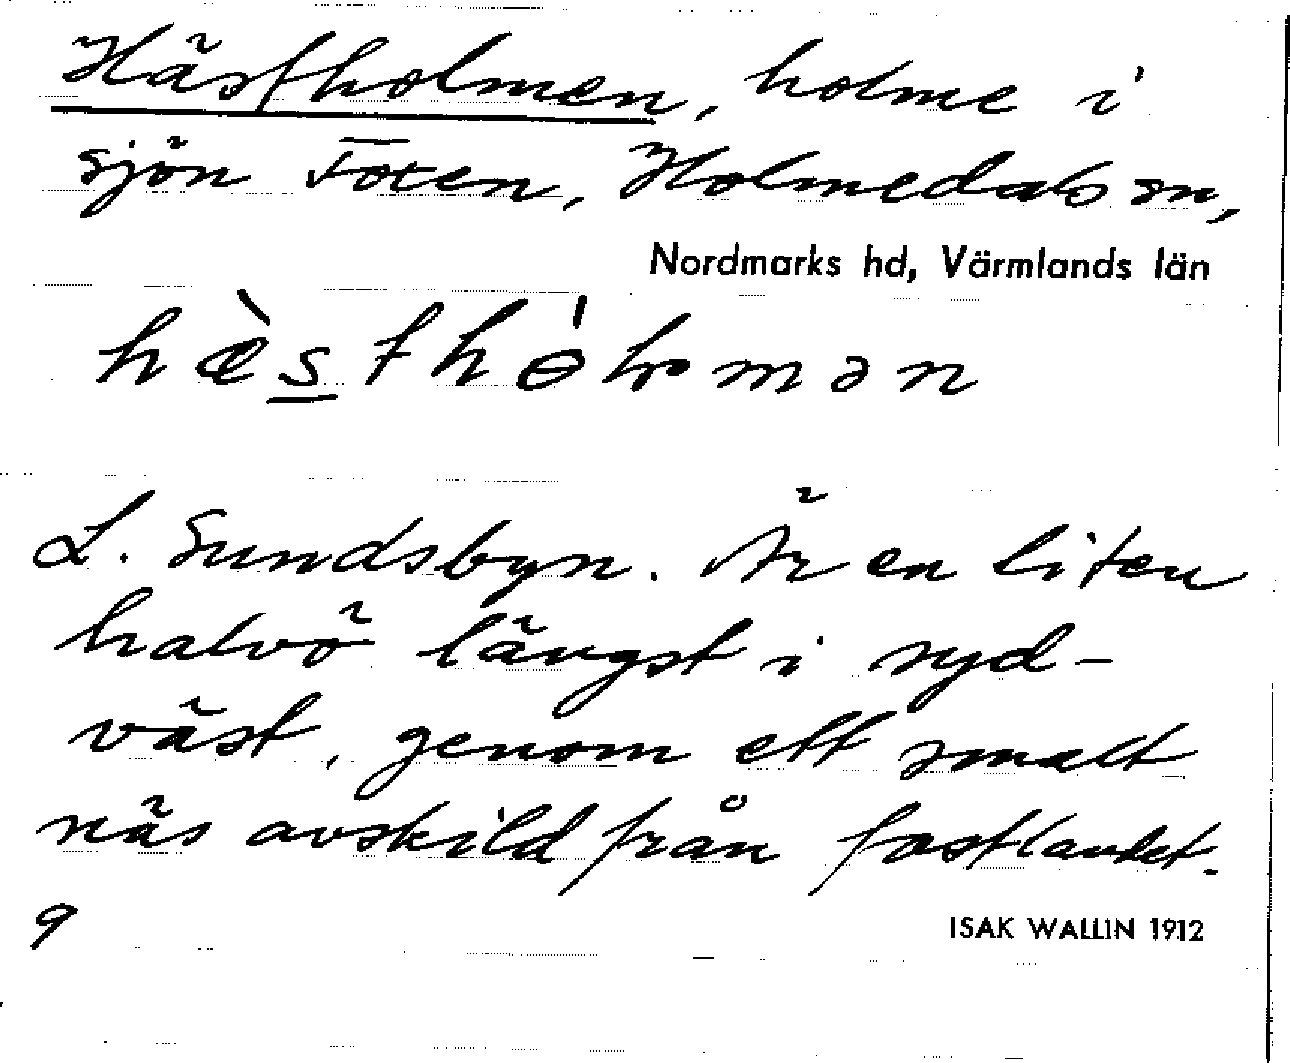 Hästholmen, holme i
sjön Foxen, Holmedals sn,
Nordmarks hd, Värmlands län
L. Sundsbyn. Är en liten
halvö längst i syd-
väst, genom ett smalt
näs avskild från fastlandet.
9
ISAK WALLIN 1912